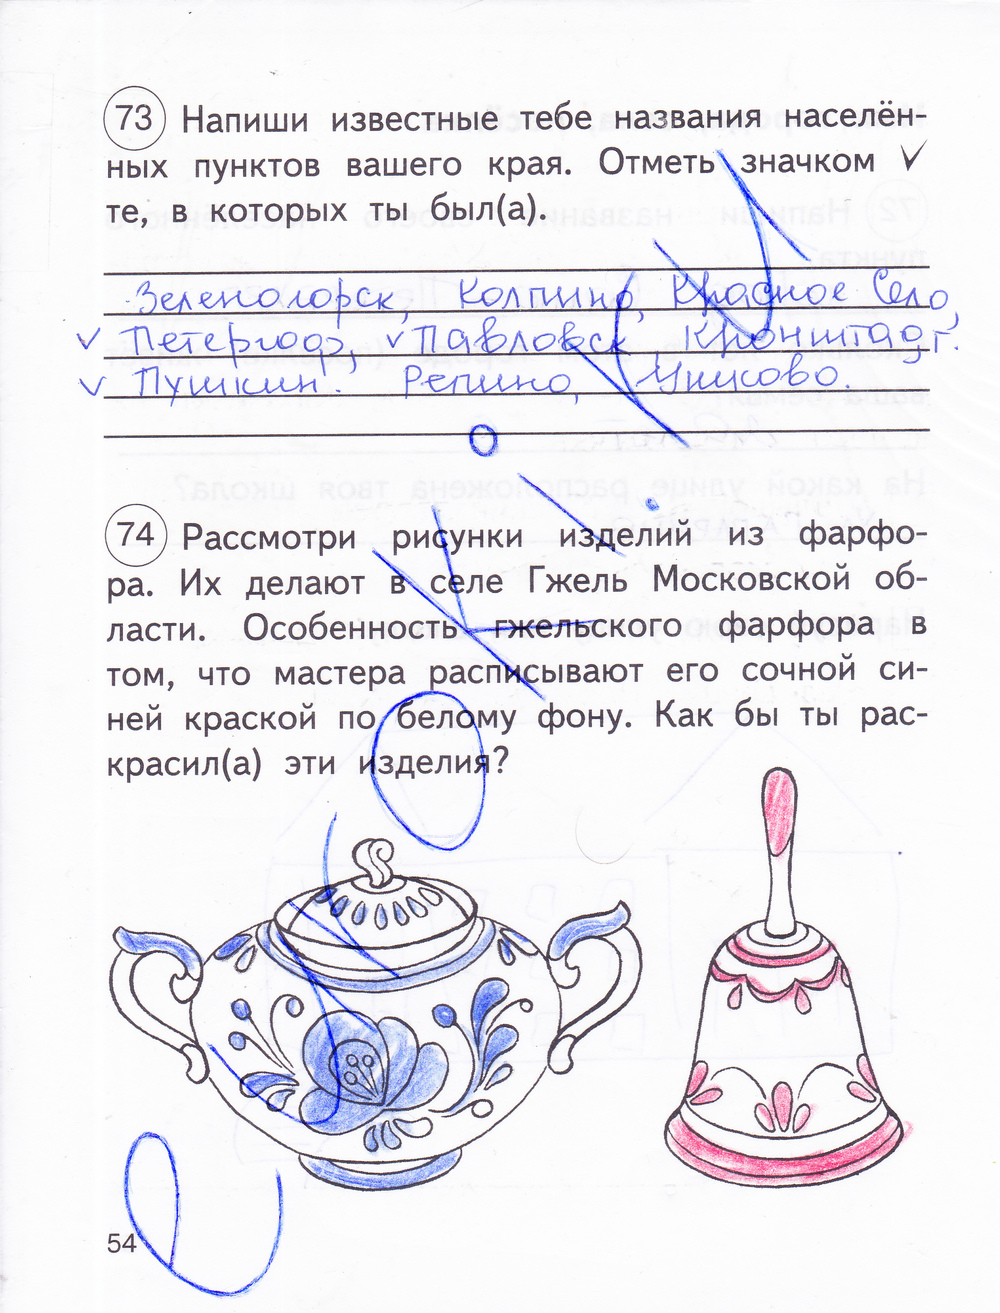 73 Напиши известные тебе названия населён-
ных пунктов вашего края. Отметь значком ✓
те, в которых ты был(а).
Зеленогорск, Колпино, Красное Село,
✓ Петергоф, ✓ Павловск, Кронштадт.
✓ Пушкин. Репино,
74 Рассмотри рисунки изделий из фарфо-
ра. Их делают в селе Гжель Московской об-
ласти. Особенность гжельского фарфора в
том, что мастера расписывают его сочной си-
ней краской по белому фону. Как бы ты рас-
красил(а) эти изделия?
54